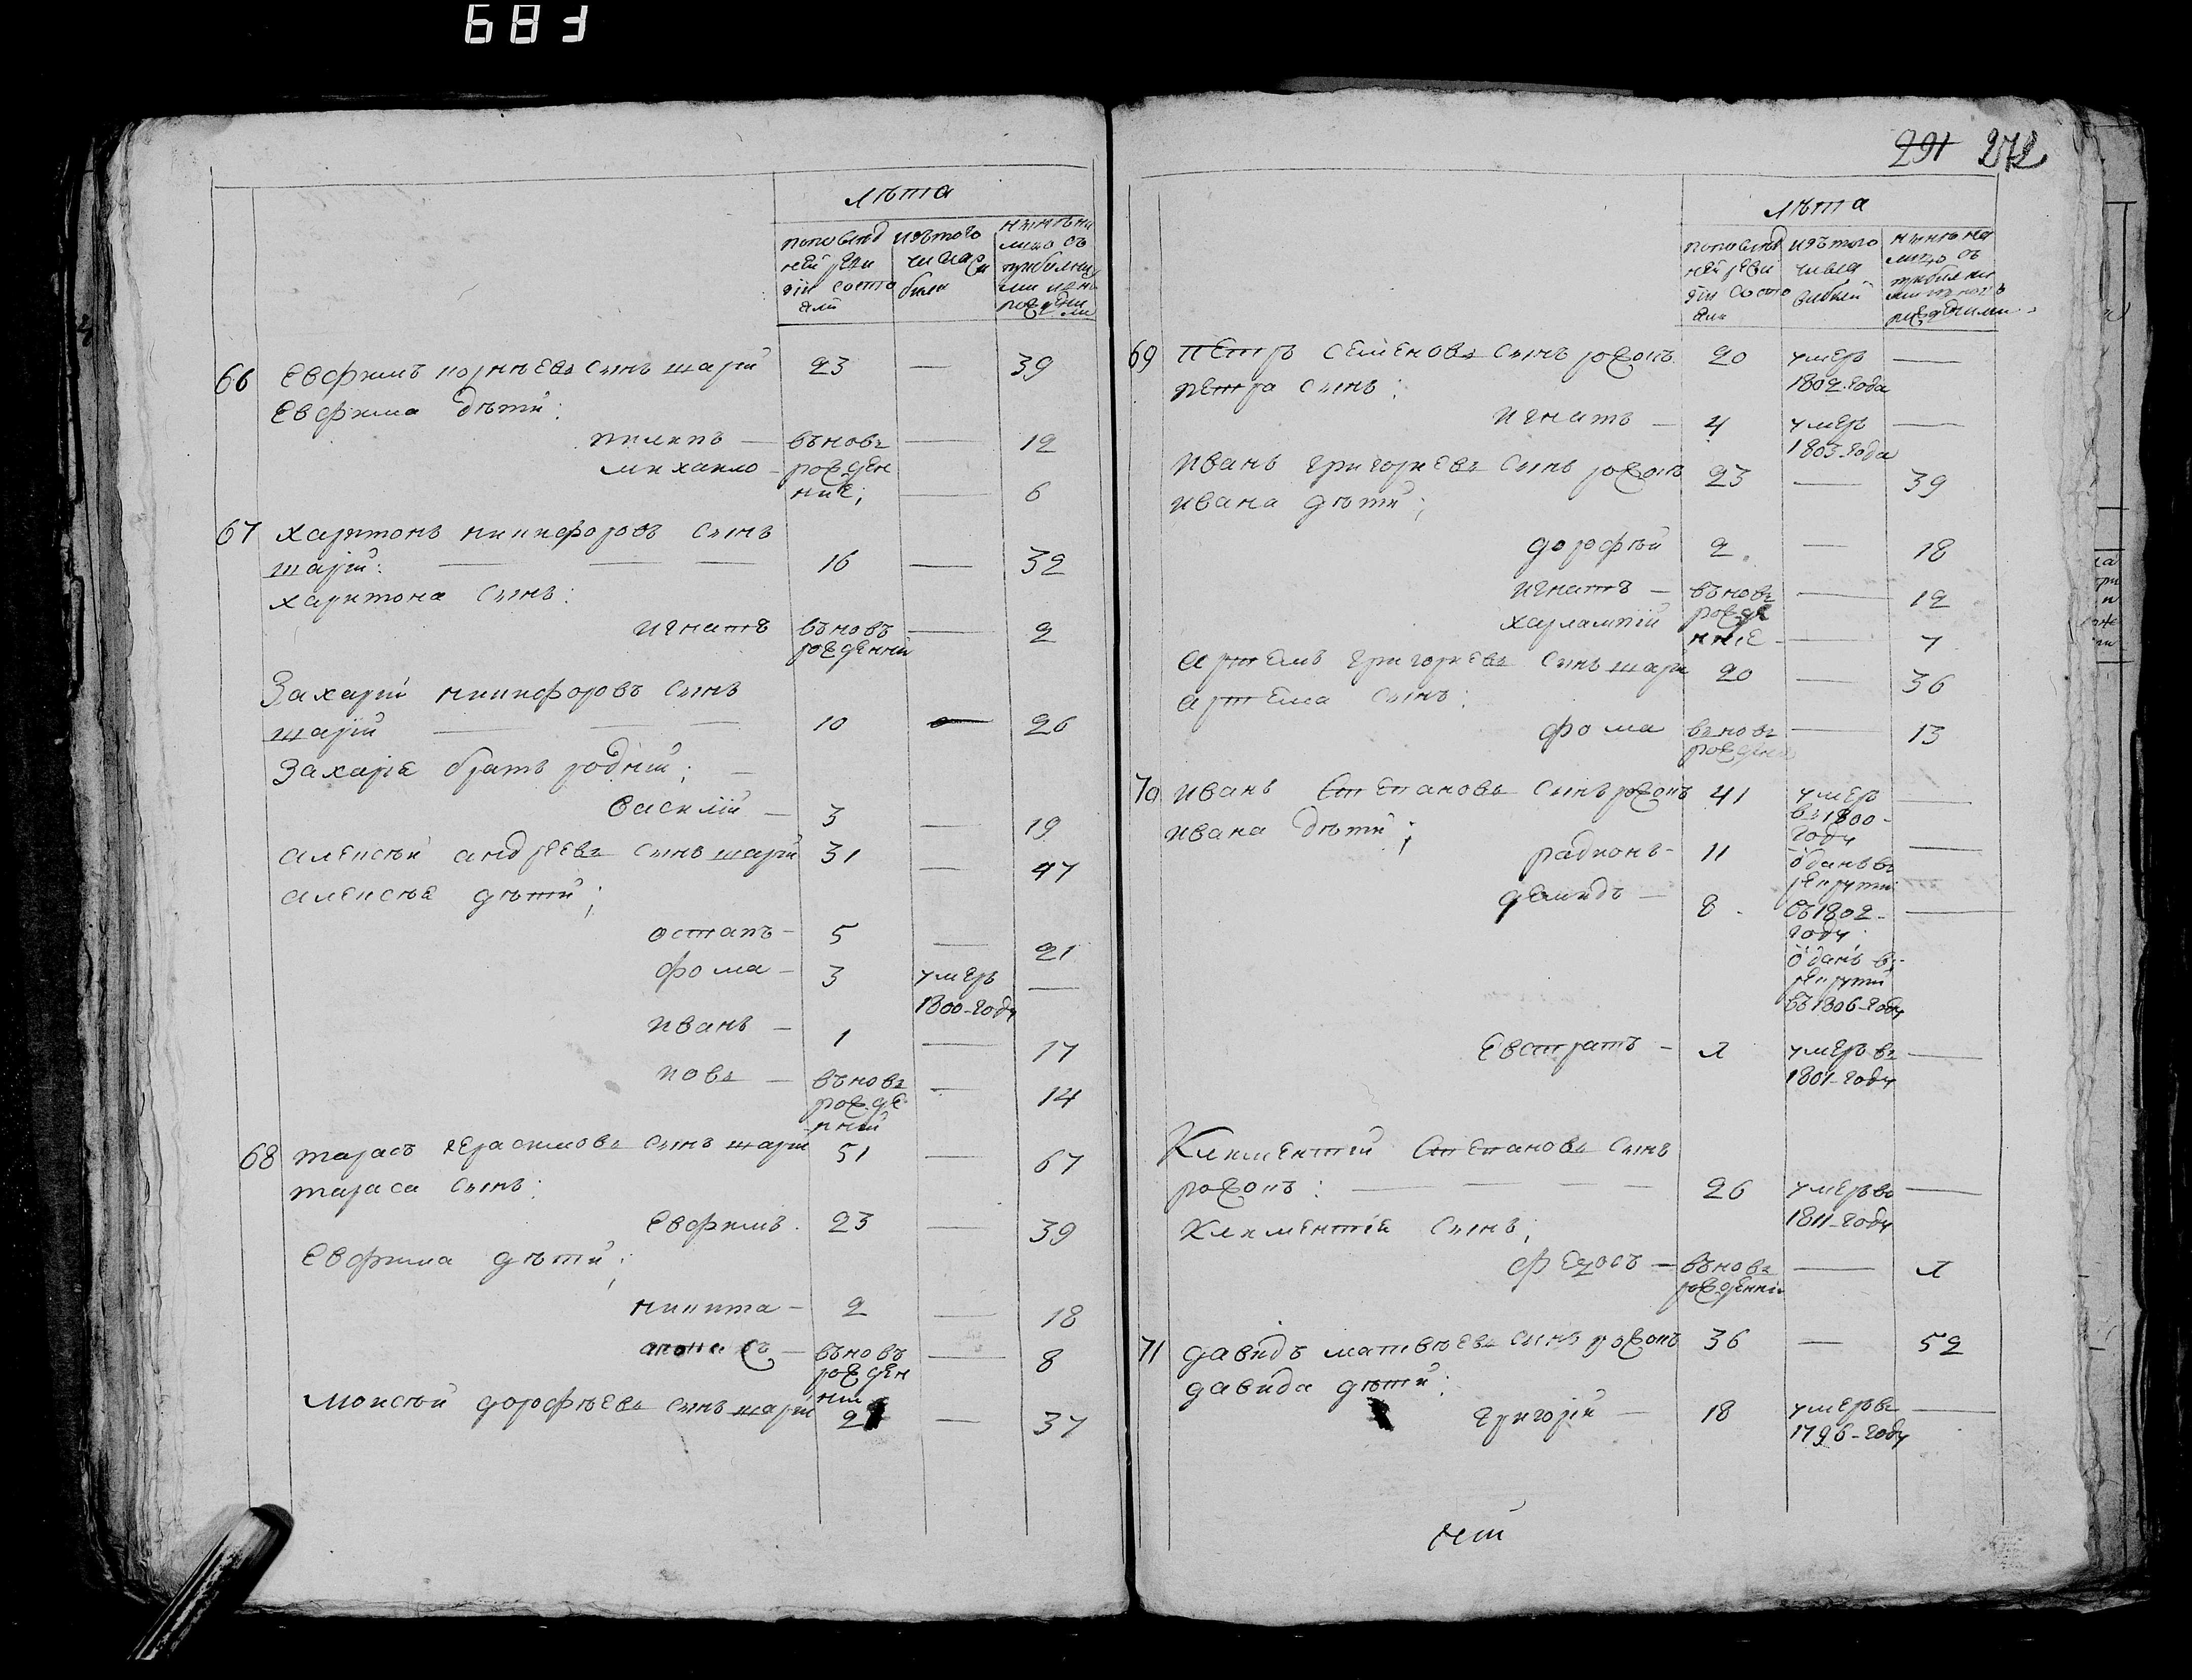 683
лѣта
попослед
ней реви
зіи состо
яли
изъ того
числа
были
нынѣ на
лицо съ
прибылы
ми и вно
рожденн
ми
66 Евфимъ корнѣевъ сынъ шарій 23 — 39
Евфима дѣти:
пилипъ — въновь — 12
михаило — рожден
ние; — 6
67 харитонъ никифоровъ сынъ
шарій: — — — 16 — 32
харитона сынъ:
игнатъ въновъ — 2
рожденній
Захарій никифоровъ сынъ
шарій — — — 10 — 26
Захаріа братъ родній; —
василій — 3 — 19
алексѣй андреевъ сынъ шарій 31 — 47
алексѣя дѣти;
остапъ — 5 — 21
фома — 3 умеръ —
1800-году
иванъ — 1 — 17
иовъ — въновь — 14
рожде
нній
68 тарасъ герасимовъ сынъ шарій 51 — 67
тараса сынъ:
Евфимъ 23 — 39
Евфима дѣти;
никита — 2 — 18
въновъ — 8
рожден
ній
Моисѣй дорофѣевъ сынъ шарій 2 — 37
291 272
лѣта
попослед
ней реви
зіи состо
яли
изъ того
числа
вибыли
нынѣ на
лицо съ
прибылы
69 петръ семеновъ сынъ рожокъ 20 умеръ —
1802-года
петра сынъ:
игнатъ — 4 умеръ —
1803-года
иванъ григориевъ сынъ рожокъ 23 — 39
ивана дѣти;
дорофѣй 2. — 18
игнатъ — въновь — 12
рожде
харлампій нние — 7
артемъ григориевъ сынъ шари 20 — 36
артема сынъ:
фома въновь — 13
рожденн
70 иванъ степановъ сынъ рожокъ 41 умеръ —
въ 1800-
году
ивана дѣти;
радионъ — 11 одань въ —
рекрути
демидъ — 8 въ 1802- —
году
одань въ
рекрути
въ 1806-году
Евстратъ — Л умеръ въ —
1801-году
Климентій степановъ сынъ
рожокъ: — — — — 26 умеръ во —
1811-году
Климентіа сынъ;
федосъ — въновь — Л
рожденній
71 давидъ матвѣевъ сынъ рожокъ 36 — 52
давида дѣти:
григорій — 18 умеръ въ —
1796-году